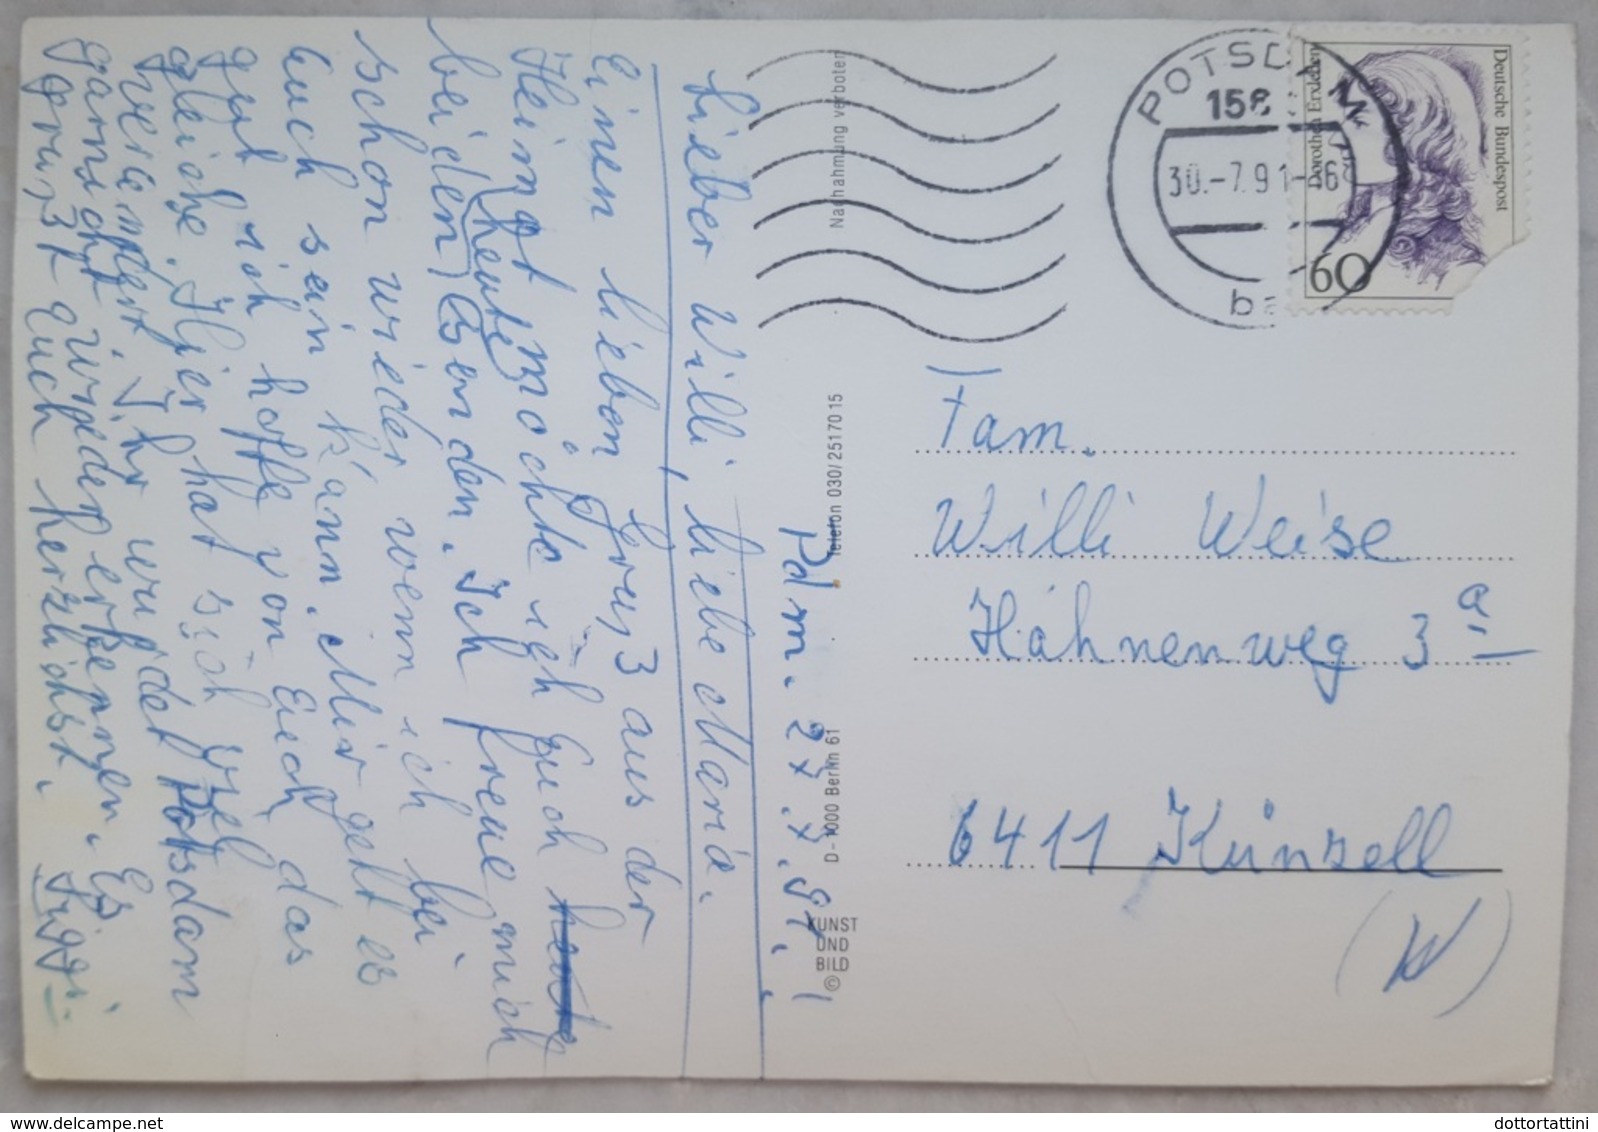 Pdm. 27.7.91.
Lieber Willi, liebe Maria.
Einen lieben Grus3 aus der
Heimat möchte ich Euch
beiden (heute) senden. Ich freue mich
schon wieder wenn ich bei
Euch sein kann. Mir geht es
gut ich hoffe von Euch das
gleiche. Hier hat sich viel
verändert Ihr würdet Potsdam
garnicht wieder erkennen. Es
grüs3t Euch herzlichst.
Siggi.
Nachahmung verboten
Telefon 030/251 70 15
D-1000 Berlin 61
© KUNST
UND
BILD
POTSDAM
158
30.-7.91-16
b
Deutsche Bundespost
Dorothea Erxleben
60
Fam.
Willi Weise
Hahnenweg 3 a.
6411 Künzell
(W)
dottortattini